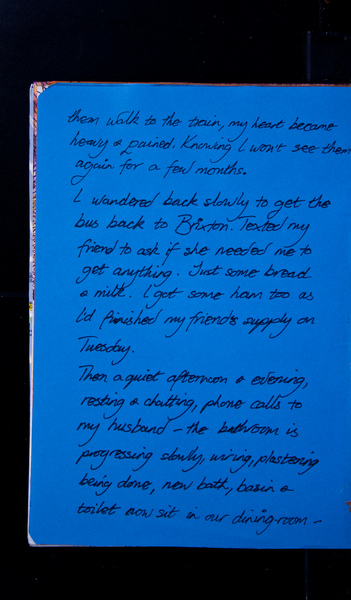 them walk to the train, my heart became
heavy & pained. Knowing I won't see them
again for a few months.
I wandered back slowly to get the
bus back to Brixton. Texted my
friend to ask if she needed me to
get anything. Just some bread
& milk. I got some ham too as
I'd finished my friends supply on
Tuesday.
Then a quiet afternoon & evening,
resting & chatting, phone calls to
my husband – the bathroom is
progressing slowly, wiring, plastering
being done, new bath, basin &
toilet now sit in our dining-room –